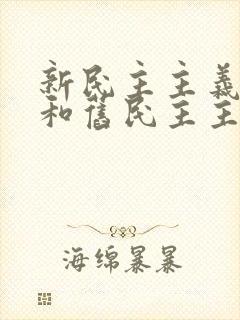 新民主主義
和舊民主主
海绵暴暴